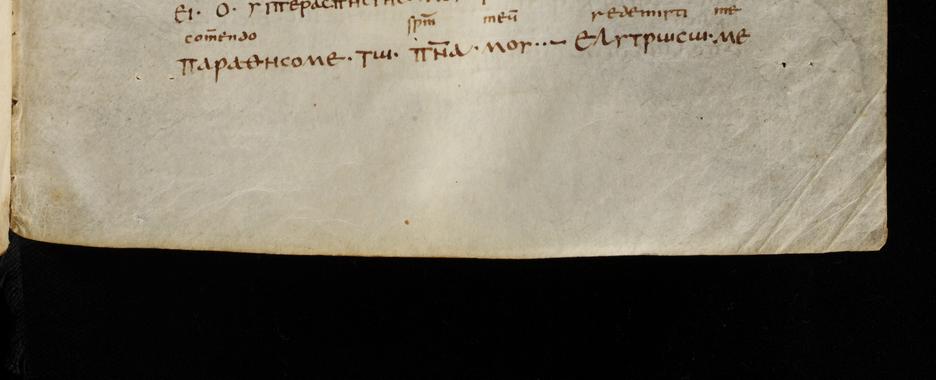 ει · ο · υπερασπιστης
comendo sp̅m meū redemisti me
παραθησομε · τωι · π̅ν̅α · μου ·· ~ ελυτρωσωι · με